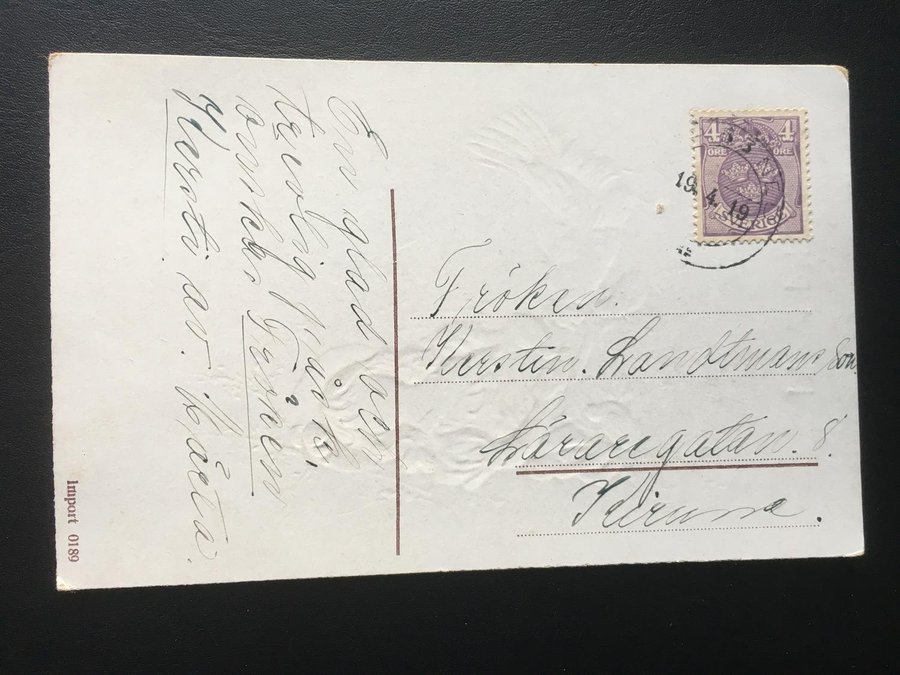 En glad och
trevlig påsk,
önskas Fröken
Kersti av. Märta.
4 4
ÖRE ÖRE
SVERIGE
19.4.19
Fröken.
Kerstin. Landtmanson
Läraregatan. 8.
Kiruna.
Import 0189